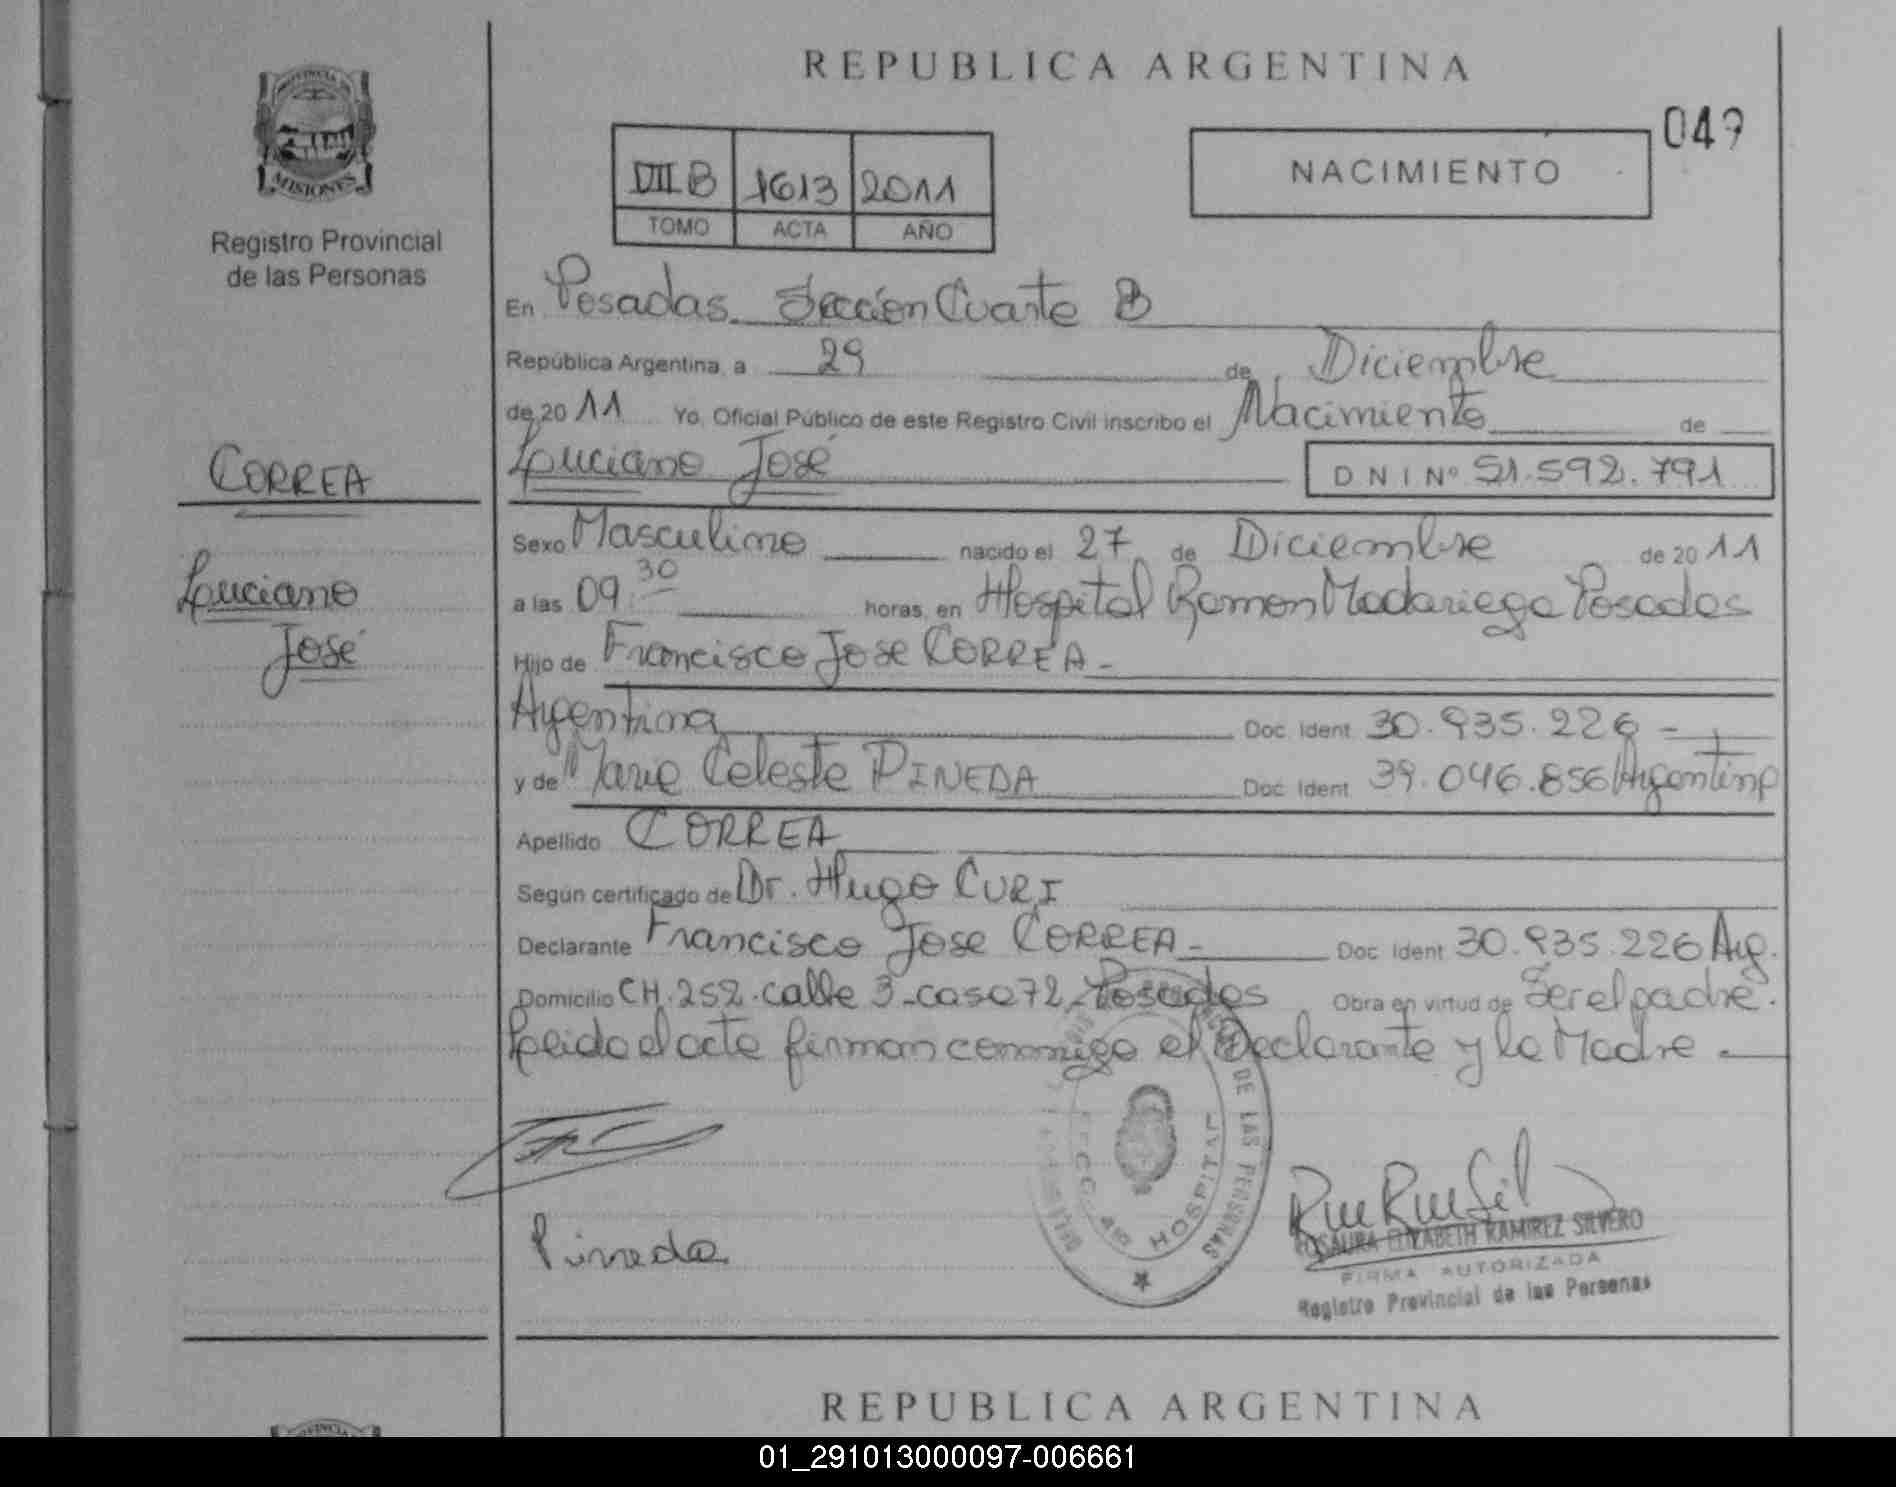 PROVINCIA DE
MISIONES
Registro Provincial
de las Personas
CORREA
Luciano
José
REPUBLICA ARGENTINA
049
VIII B 1613 2011
TOMO ACTA AÑO
NACIMIENTO
En Posadas Sección Cuarta B
República Argentina, a 29 de Diciembre
de 2011 Yo, Oficial Público de este Registro Civil inscribo el Nacimiento de
Luciano José DNI Nº 51.592.791
Sexo Masculino nacido el 27 de Diciembre de 2011
a las 09:30 horas, en Hospital Ramon Madariaga Posadas
Hijo de Francisco Jose CORREA -
Argentina Doc. Ident. 30.935.226 -
y de Maria Celeste PINEDA Doc. Ident. 39.046.856 Argentina
Apellido CORREA
Según certificado de Dr. Hugo CURI
Declarante Francisco Jose CORREA - Doc. Ident. 30.935.226 Arg.
Domicilio CH. 252. calle 3 - casa 72 - Posadas Obra en virtud de Ser el padre.
Leido el acta firman conmigo el Declarante y la Madre . -
DE LAS PERSONAS
SECC. 4ª B HOSPITAL
Pineda
ROSAURA ELIZABETH RAMIREZ SILVERO
FIRMA AUTORIZADA
Registro Provincial de las Personas
REPUBLICA ARGENTINA
01_291013000097-006661